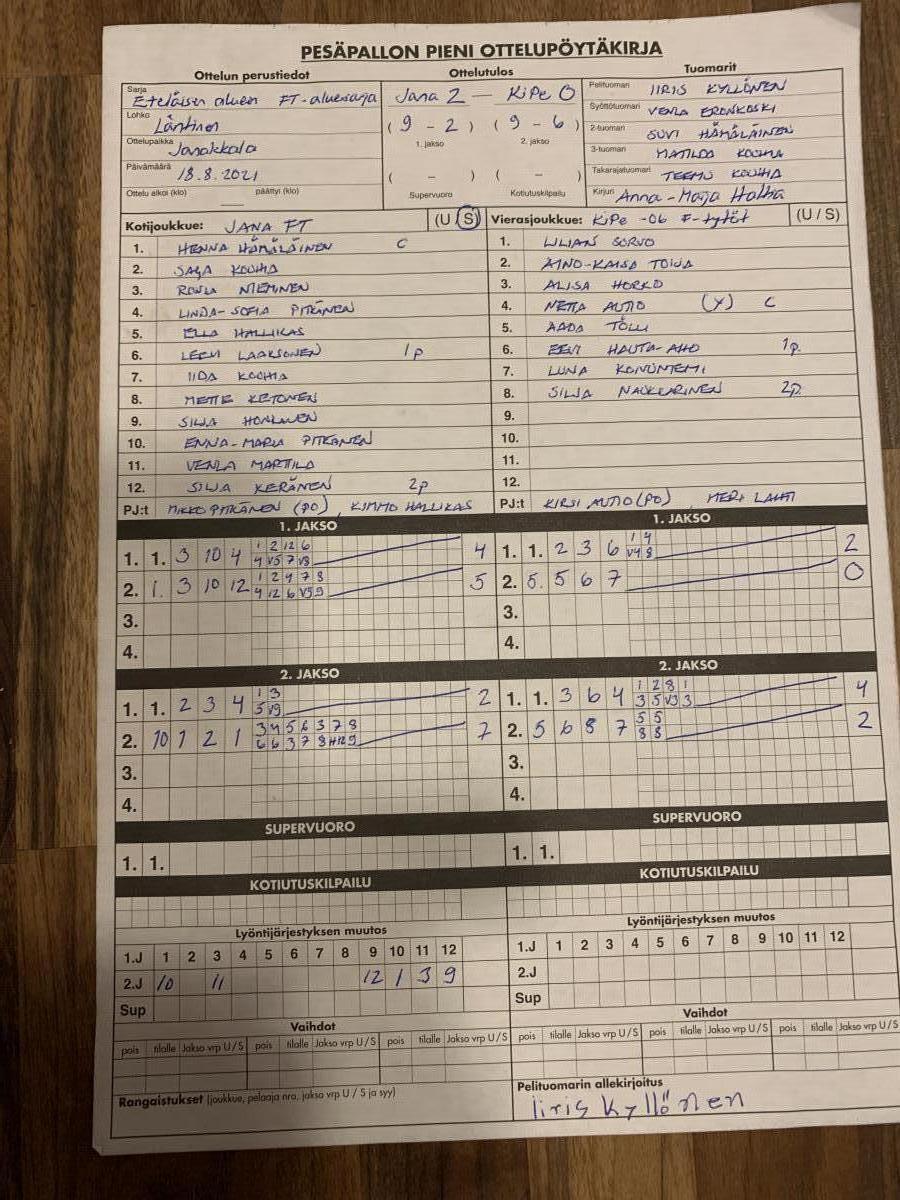 PESÄPALLON PIENI OTTELUPÖYTÄKIRJA
Ottelun perustiedot Ottelutulos Tuomarit
Sarja Eteläisen alueen FT-aluesarja
Lohko Läntinen
Ottelupaikka Janakkala
Päivämäärä 18.8.2021
Ottelu alkoi (klo) päättyi (klo)
Jana 2 — KiPe 0
(9 - 2) (9 - 6)
1. jakso 2. jakso
( - ) ( - )
Supervuoro Kotiutuskilpailu
Pelituomari IIRIS KYLLÖNEN
Syöttötuomari VENLA ERONKOSKI
2-tuomari SUVI HÄMÄLÄINEN
3-tuomari MATILDA KOUHIA
Takarajatuomari TEEMU KOUHIA
Kirjuri Anna-Maija Hattia
Kotijoukkue: JANA FT (U S)
1. HENNA HÄMÄLÄINEN C
2. SAGA KOUHIA
3. RONJA NIEMINEN
4. LINDA-SOFIA PITKÄNEN
5. ELLA HALLIKAS
6. LEEVI LAAKSONEN 1p
7. IIDA KOUHIA
8. METTE KETONEN
9. SILJA HONKANEN
10. ENNA-MARIA PITKÄNEN
11. VENLA MARTILA
12. SILJA KERÄNEN 2p
PJ:t MIKKO PITKÄNEN (PO), KIMMO HALLIKAS
Vierasjoukkue: KiPe -06 F-tytöt (U / S)
1. LILIAN SORVO
2. AINO-KAISA TOIJA
3. ALISA HORKO
4. NETTA AUTIO (Y) C
5. AADA TÖLLI
6. EEVI HAUTA-AHO 1p.
7. LUNA KOIVUNIEMI
8. SILJA NAUKKARINEN 2p.
9.
10.
11.
12.
PJ:t KIRSI AUTIO (PO), MERI LAHTI
1. JAKSO 1. JAKSO
1. 1. 3 10 4 1 2 12 6 4
4 V5 7 V8
2. 1. 3 10 12 1 2 4 7 8 5
4 12 6 V5 9
3.
4.
1. 1. 2 3 6 1 4 2
V4 8
2. 5. 5 6 7 0
3.
4.
2. JAKSO 2. JAKSO
1. 1. 2 3 4 1 3 2
5 V9
2. 10 1 2 1 3 4 5 6 3 7 8 7
6 6 3 7 8 H12 9
3.
4.
1. 1. 3 6 4 1 2 8 1 4
3 5 V3 3
2. 5 6 8 7 5 5 2
8 8
3.
4.
SUPERVUORO SUPERVUORO
1. 1. 1. 1.
KOTIUTUSKILPAILU KOTIUTUSKILPAILU
Lyöntijärjestyksen muutos
1.J 1 2 3 4 5 6 7 8 9 10 11 12
2.J 10 11 12 1 3 9
Sup
Lyöntijärjestyksen muutos
1.J 1 2 3 4 5 6 7 8 9 10 11 12
2.J
Sup
Vaihdot Vaihdot
pois tilalle Jakso vrp U / S pois tilalle Jakso vrp U / S pois tilalle Jakso vrp U / S
pois tilalle Jakso vrp U / S pois tilalle Jakso vrp U / S pois tilalle Jakso vrp U / S
Rangaistukset (joukkue, pelaaja nro, jakso vrp U / S ja syy)
Pelituomarin allekirjoitus
Iiris kyllönen